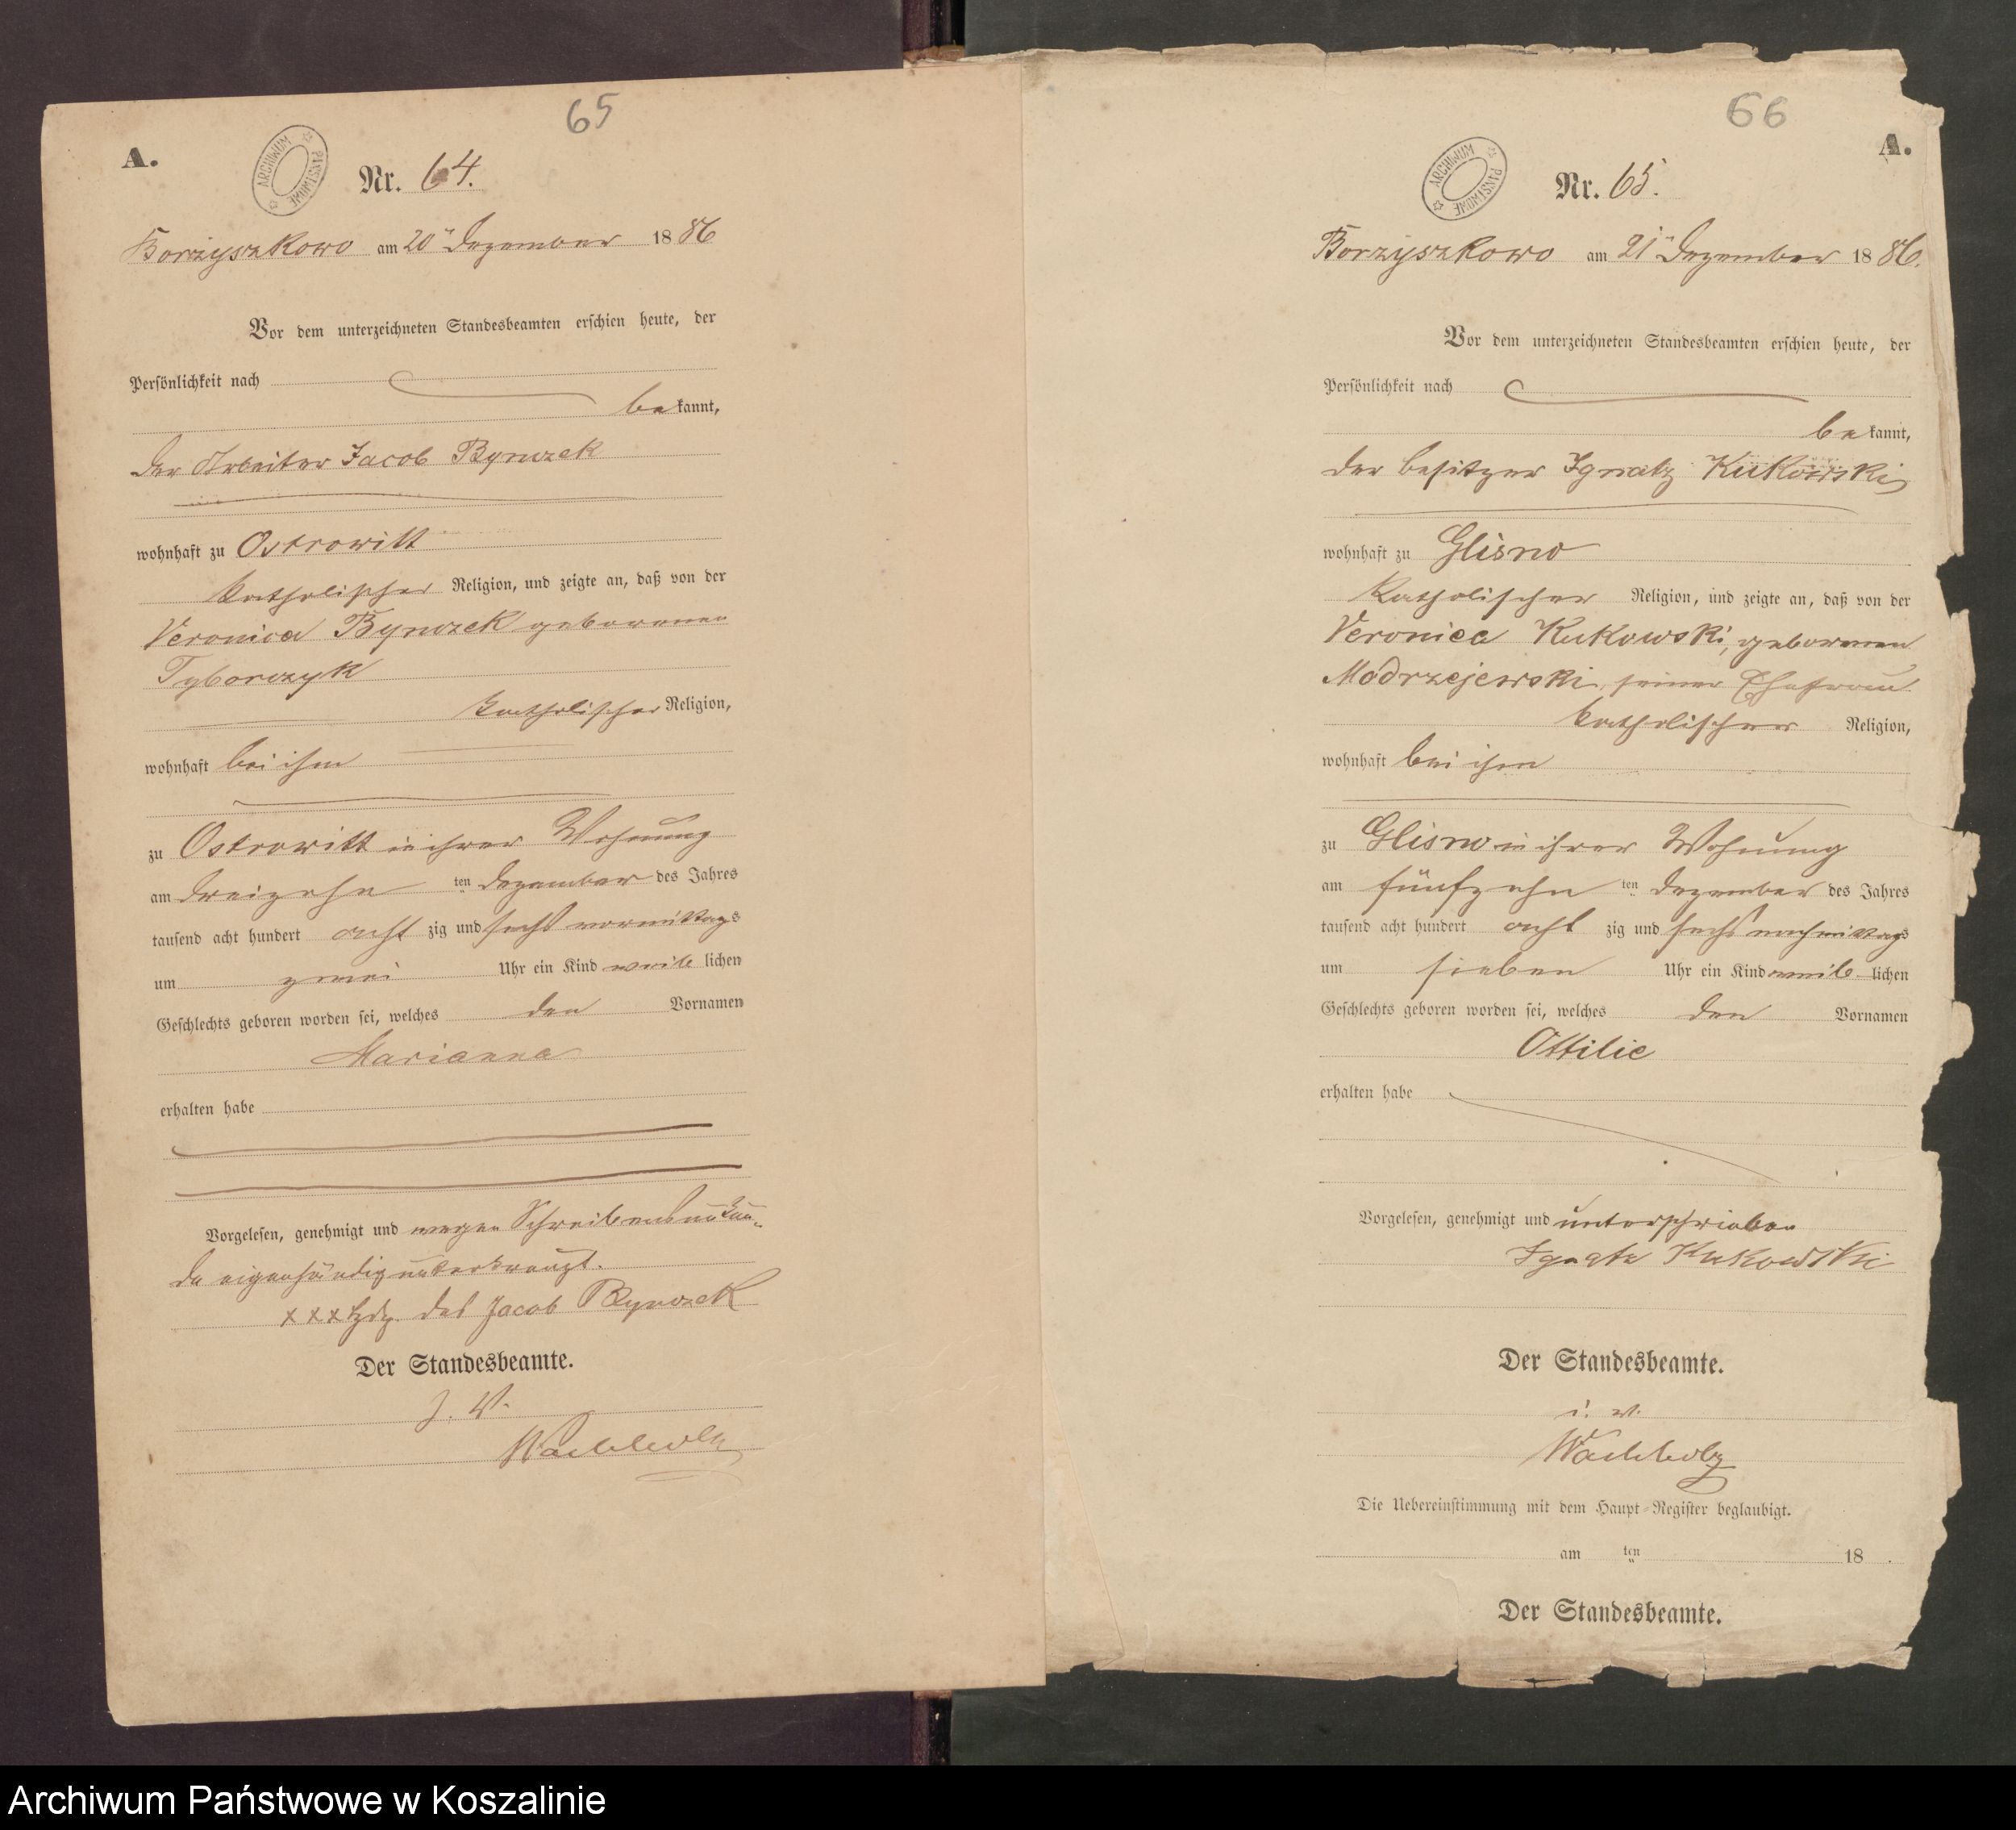 65
A.
ARCHIWUM PAŃSTWOWE
Nr. 64.
Borzyszkowo am 20ten Dezember 1886
Vor dem unterzeichneten Standesbeamten erschien heute, der
Persönlichkeit nach
bekannt,
der Arbeiter Jacob Bynczek
wohnhaft zu Ostrowitt
katholischer Religion, und zeigte an, daß von der
Veronica Bynczek geborenen
Tyborczyk
katholischer Religion,
wohnhaft bei ihm
zu Ostrowitt in ihrer Wohnung
am dreizehn ten Dezember des Jahres
tausend acht hundert acht zig und sechs vormittags
um zwei Uhr ein Kind weiblichen
Geschlechts geboren worden sei, welches den Vornamen
Marianna
erhalten habe
Vorgelesen, genehmigt und wegen Schreibensunkun-
de eigenhändig unterkreuzt.
xxx Hdz. des Jacob Bynczek
Der Standesbeamte.
J. V.
Wachholz
66
A.
ARCHIWUM PAŃSTWOWE
Nr. 65.
Borzyszkowo am 21ten Dezember 1886.
Vor dem unterzeichneten Standesbeamten erschien heute, der
Persönlichkeit nach
bekannt,
der Besitzer Ignatz Kukowski
wohnhaft zu Glisno
katholischer Religion, und zeigte an, daß von der
Veronica Kukowski, geborenen
Modrzejewski, seiner Ehefrau
katholischer Religion,
wohnhaft bei ihm
zu Glisno in ihrer Wohnung
am fünfzehn ten Dezember des Jahres
tausend acht hundert acht zig und sechs nachmittags
um sieben Uhr ein Kind weiblichen
Geschlechts geboren worden sei, welches den Vornamen
Ottilie
erhalten habe
Vorgelesen, genehmigt und unterschrieben
Ignatz Kukowski
Der Standesbeamte.
i. V.
Wachholz
Die Uebereinstimmung mit dem Haupt-Register beglaubigt.
am ten 18 .
Der Standesbeamte.
Archiwum Państwowe w Koszalinie